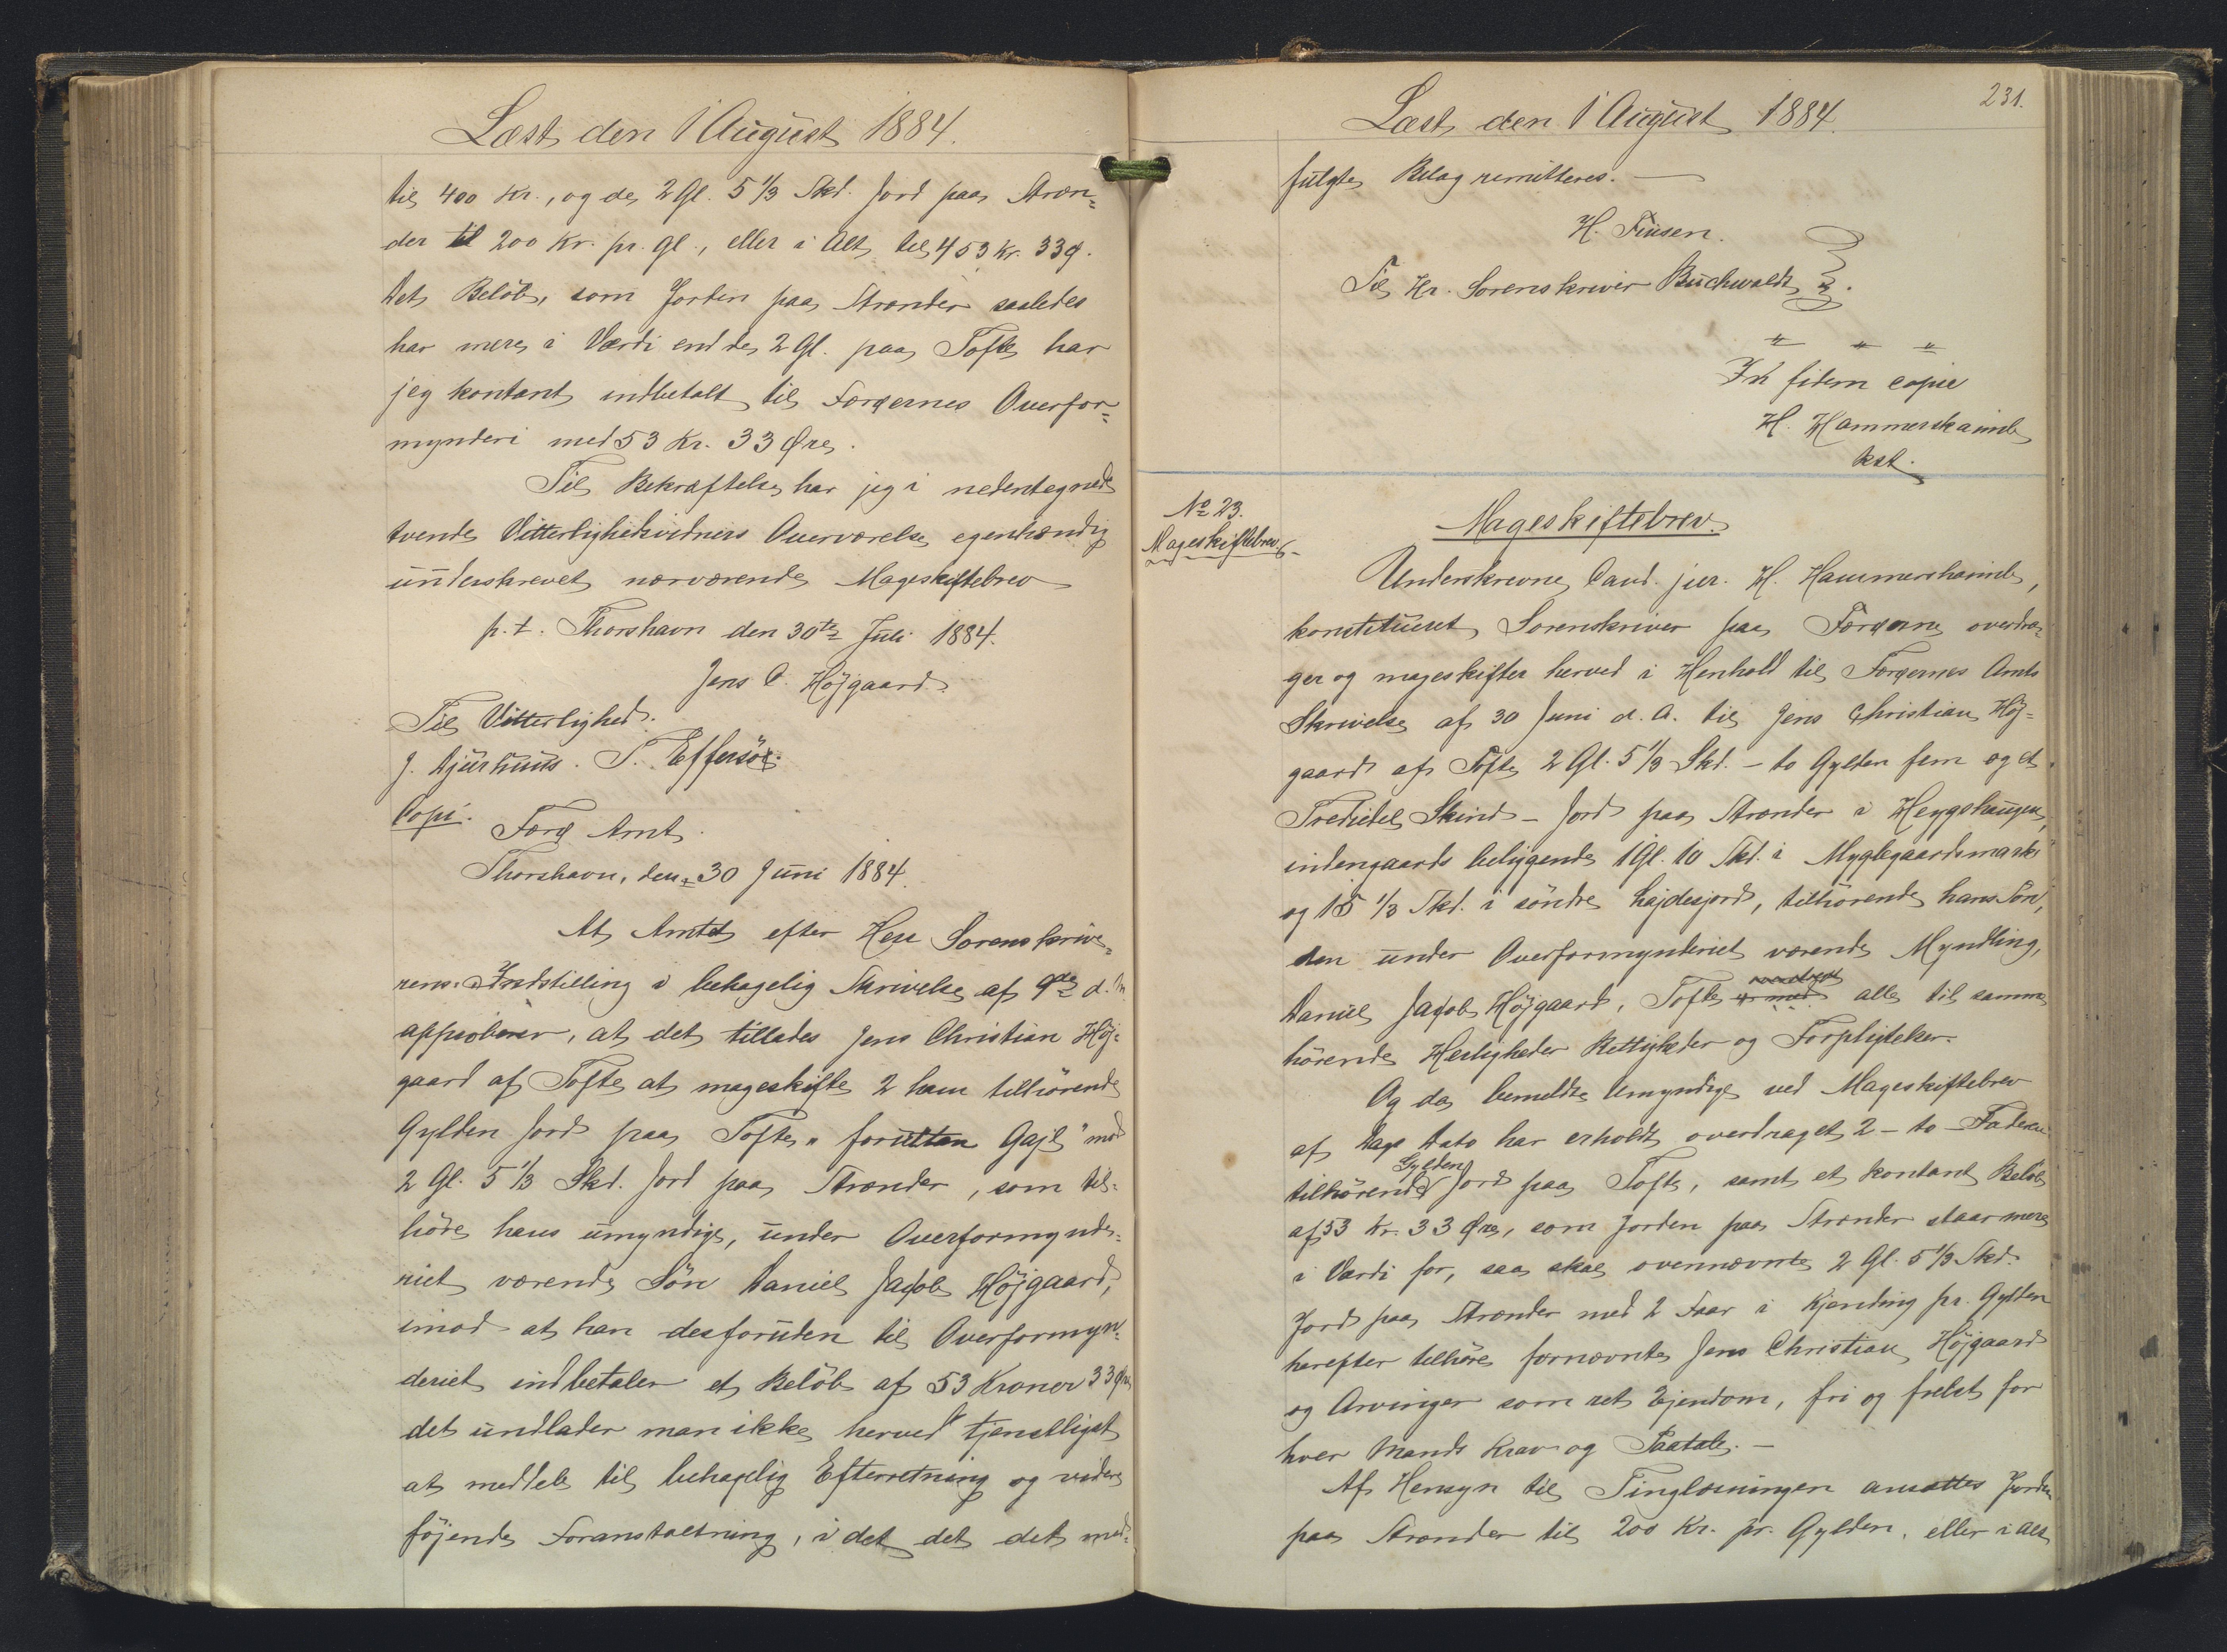 Læst den 1 August 1884.
til 400 Kr., og de 2 Gl. 5 1/3 Skd. Jord paa Stræn=
der til 200 Kr. pr. Gl., eller i Alt til 453 Kr. 33 Ø.
Det Beløb, som Jorden paa Strænder saaledes
har mere i Værdi end de 2 Gl. paa Tofte har
jeg kontant indbetalt til Færøernes Overfor=
mynderi med 53 Kr. 33 Øre.
Til Bekræftelse har jeg i nedentegnede
tvende Vitterlighedsvidners Overværelse egenhændig
underskrevet nærværende Mageskiftebrev
p. t. Thorshavn den 30te Juli 1884.
Jens C. Höjgaard.
Til Vitterlighed.
J. Djurhuus. S. Effersöe.
Copi.
Færø Amt.
Thorshavn, den 30 Juni 1884.
At Amtet efter Herr Sorenskrive=
rens Indstilling i behagelig Skrivelse af 9de d. M.
approberer, at det tillades Jens Christian Höj=
gaard af Tofte at mageskifte 2 ham tilhörende
Gylden Jord paa Tofte "foruttan Gajl" mod
2 Gl. 5 1/3 Skd. Jord paa Strænder, som til=
höre hans umyndige, under Overformynde=
riet værende Sön Daniel Jacob Höjgaard,
imod at han desforuden til Overformyn=
deriet indbetaler et Belöb af 53 Kroner 33 Øre
det undlader man ikke herved tjenstligst
at meddele til behagelig Efterretning og videre
föjende Foranstaltning, i det det det med=
231.
Læst den 1 August 1884.
fulgte Bilag remitteres. —
H. Finsen.
Til Hr. Sorenskriver Buchwaldt.
" " "
In fidem copiæ
H. Hammershaimb
kst.
No 23.
Mageskiftebrev.
Mageskiftebrev.
Underskrevne Cand. jur. H. Hammershaimb,
konstitueret Sorenskriver paa Færøerne overdra=
ger og mageskifter herved i Henhold til Færøernes Amts
Skrivelse af 30 Juni d. A. til Jens Christian Höj=
gaard af Tofte 2 Gl. 5 1/3 Skd. – to Gylden fem og et
Trediedel Skind – Jord paa Strænder i Heygshaugen,
indengaards beliggende 1 Gl. 10 Skd. i Myglegaardsmark
og 15 1/3 Skd. i söndre hajdesjord, tilhörende hans Sön,
den under Overformynderiet værende Myndling,
Daniel Jacob Höjgaard, Tofte med alle til samme
hörende Herligheder Rettigheder og Forpligtelser.
Og da bemeldte Umyndige ved Mageskiftebrev
af Dags Dato har erholdt overdraget 2 – to – Faderen
tilhörende Gylden Jord paa Tofte, samt et kontant Belöb
af 53 Kr. 33 Øre, som Jorden paa Strænder staar mere
i Værdi for, saa skal ovennævnte 2 Gl. 5 1/3 Skd.
Jord paa Strænder med 2 Faar i Kjending pr. Gylden
herefter tilhöre fornævnte Jens Christian Höjgaard
og Arvinger som ret Ejendom, fri og frelst for
hver Mands Krav og Paatale. –
Af Hensyn til Tinglæsningen ansættes Jorden
paa Strænder til 200 Kr. pr. Gylden, eller i Alt